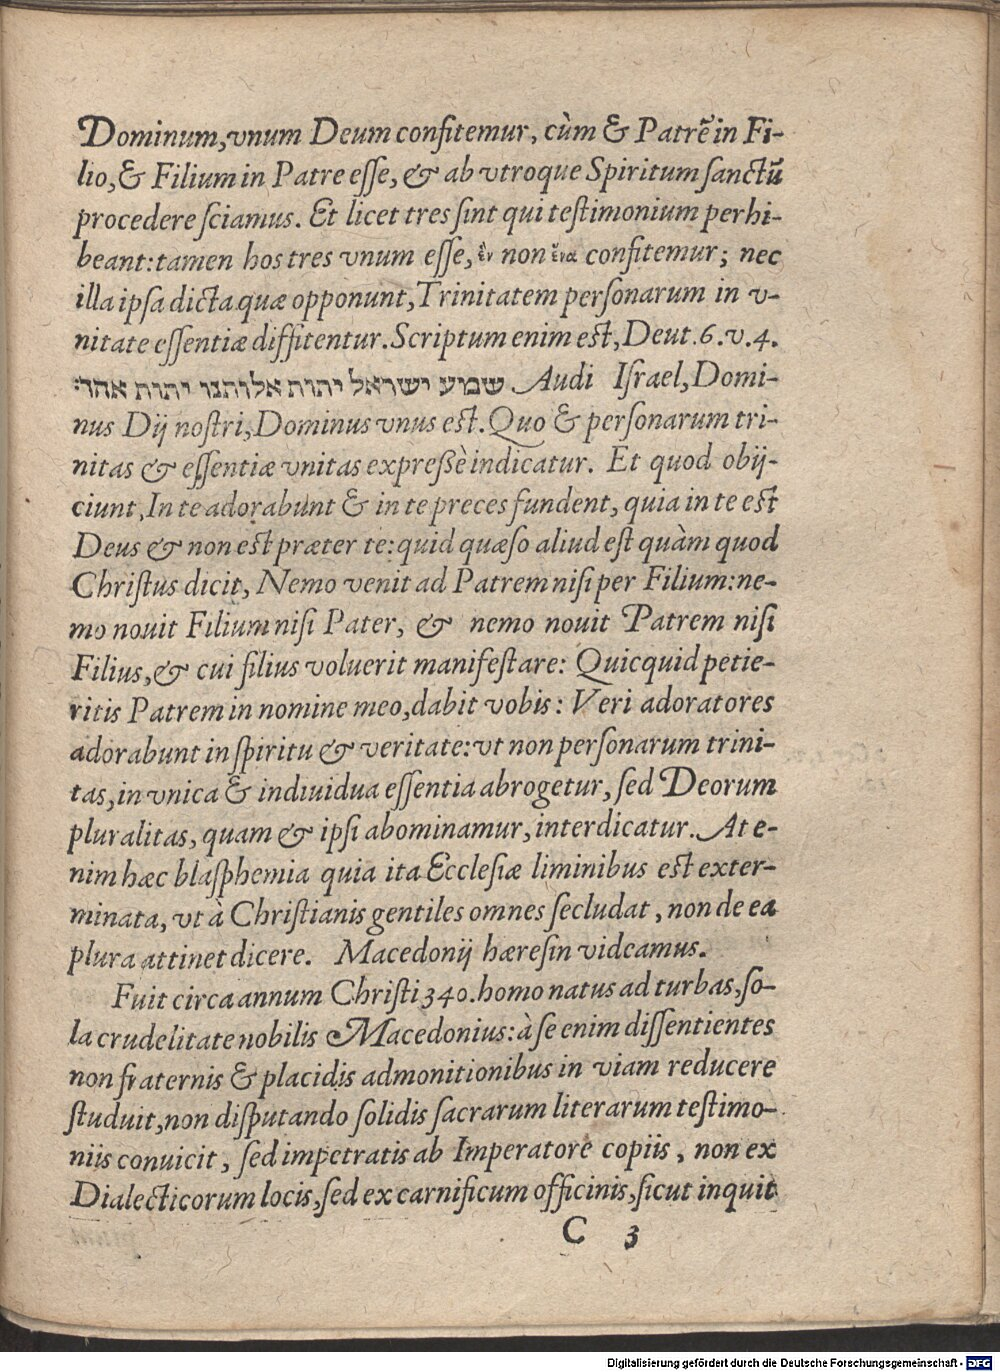 Dominum, vnum Deum confitemur, cùm & Patrẽ in Fi-
lio, & Filium in Patre eſſe, & ab vtroque Spiritum ſanctũ
procedere ſciamus. Et licet tres ſint qui teſtimonium perhi-
beant: tamen hos tres vnum eſſe, ἓν non ἕνα confitemur; nec
illa ipſa dicta quæ opponunt, Trinitatem perſonarum in v-
nitate eſſentiæ diffitentur. Scriptum enim eſt, Deut. 6. v. 4.
שמע ישראל יהוה אלוהנו יהוה אחד: Audi Iſrael, Domi-
nus Dij noſtri, Dominus vnus eſt. Quo & perſonarum tri-
nitas & eſſentiæ vnitas expreßè indicatur. Et quod obij-
ciunt, In te adorabunt & in te preces fundent, quia in te eſt
Deus & non eſt præter te: quid quæſo aliud eſt quàm quod
Chriſtus dicit, Nemo venit ad Patrem niſi per Filium: ne-
mo nouit Filium niſi Pater, & nemo nouit Patrem niſi
Filius, & cui filius voluerit manifeſtare: Quicquid petie-
ritis Patrem in nomine meo, dabit vobis: Veri adoratores
adorabunt in ſpiritu & veritate: vt non perſonarum trini-
tas, in vnica & indiuidua eſſentia abrogetur, ſed Deorum
pluralitas, quam & ipſi abominamur, interdicatur. At e-
nim hæc blaſphemia quia ita Eccleſiæ liminibus eſt exter-
minata, vt à Chriſtianis gentiles omnes ſecludat, non de ea
plura attinet dicere. Macedonij hæreſin videamus.
Fuit circa annum Chriſti 340. homo natus ad turbas, ſo-
la crudelitate nobilis Macedonius: à ſe enim diſſentientes
non fraternis & placidis admonitionibus in viam reducere
ſtuduit, non diſputando ſolidis ſacrarum literarum teſtimo-
niis conuicit, ſed impetratis ab Imperatore copiis, non ex
Dialecticorum locis, ſed ex carnificum officinis, ſicut inquit
C 3
Digitalisierung gefördert durch die Deutsche Forschungsgemeinschaft - DFG